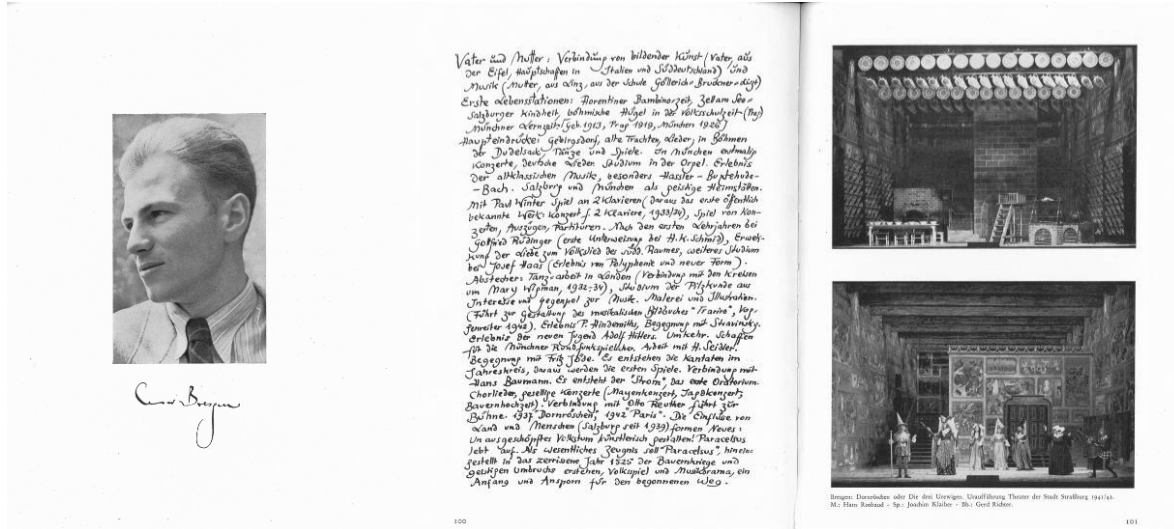 Vater und Mutter: Verbindung von bildender Kunst (Vater, aus
der Eifel, Hauptschaffen in Italien und Süddeutschland) und
Musik (Mutter, aus Linz, aus der Schule Göllerich-Bruckner-Liszt)
Erste Lebensstationen: Florentiner Bambinozeit, Zell am See-
Salzburger Kindheit, böhmische Hügel in der Volksschulzeit (Prag)
Münchner Lernzeit (geb. 1913, Prag 1919, München 1926)
Haupteindrücke: Gebirgsdorf, alte Trachten, Lieder, in Böhmen
der Dudelsack, Tänze und Spiele. In München erstmalig
Konzerte, deutsche Lieder. Studium in der Orgel. Erlebnis
der altklassischen Musik, besonders Hassler - Buxtehude-
-Bach. Salzburg und München als geistige Heimstätten.
Mit Paul Winter Spiel an 2 Klavieren (daraus das erste öffentlich
bekannte Werk: Konzert f. 2 Klaviere, 1933/34), Spiel von Kon-
zerten, Auszügen, Partituren. Nach den ersten Lehrjahren bei
Gottfried Rüdinger (erste Unterweisung bei H. K. Schmid), Erwek-
kung der Liebe zum Volkslied des südd. Raumes, weiteres Studium
bei Josef Haas (Erlebnis von Polyphonie und neuer Form).
Abstecher: Tanzarbeit in London (Verbindung mit den Kreisen
um Mary Wigman, 1932-34), Studium der Pilzkunde aus
Interesse und Gegenpol zur Musik. Malerei und Illustration.
(Führt zur Gestaltung des musikalischen Bildbuches "Trariro", Vog-
genreiter 1942). Erlebnis P. Hindemiths, Begegnung mit Stravinsky.
Erlebnis der neuen Jugend Adolf Hitlers. Umkehr. Schaffen
für die Münchner Rundfunkspielschar. Arbeit mit H. Seidler.
Begegnung mit Fritz Jöde. Es entstehen die Kantaten im
Jahreskreis, daraus werden die ersten Spiele. Verbindung mit
Hans Baumann. Es entsteht der "Strom", das erste Oratorium.
Chorlieder, gesellige Konzerte (Mayenkonzert, Jagdkonzert,
Bauernhochzeit). Verbindung mit Otto Reuther führt zur
Bühne. 1937 "Dornröschen", 1942 "Paris". Die Einflüsse von
Land und Menschen (Salzburg seit 1939) formen Neues:
Unausgeschöpftes Volkstum künstlerisch gestalten! Paracelsus
lebt auf. Als wesentliches Zeugnis soll "Paracelsus", hinein-
gestellt in das zerrissene Jahr 1525 der Bauernkriege und
geistigen Umbruchs erstehen, Volksspiel und Musikdrama, ein
Anfang und Ansporn für den begonnenen Weg.
100
Bresgen: Dornröschen oder Die drei Urewigen. Uraufführung Theater der Stadt Straßburg 1941/42.
M.: Hans Rosbaud - Sp.: Joachim Klaiber - Bb.: Gerd Richter.
101